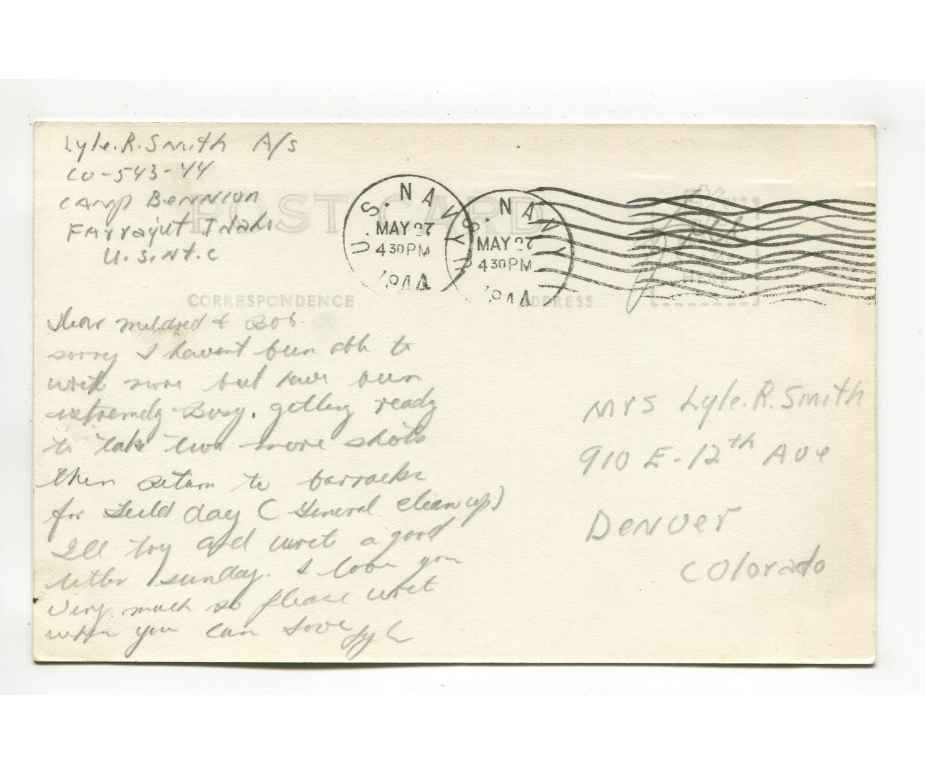 Lyle.R.Smith A/S
CO-543-44
Camp Bennion
Farragut Idaho
U.S.N.T.C
POST CARD
U.S. NAVY
MAY 27
430PM
1944
U.S. NAVY
MAY 27
430PM
1944
CORRESPONDENCE
ADDRESS
Dear Mildred & Bob.
sorry I havent been able to
write more but have been
extremely Busy. getting ready
to take two more shots
then return to barracks
for field day (General clean up)
Ill try and write a good
letter sunday. I love you
very much so please write
when you can Love Lyle
Mrs Lyle.R.Smith
910 E-12th Ave
Denver
Colorado